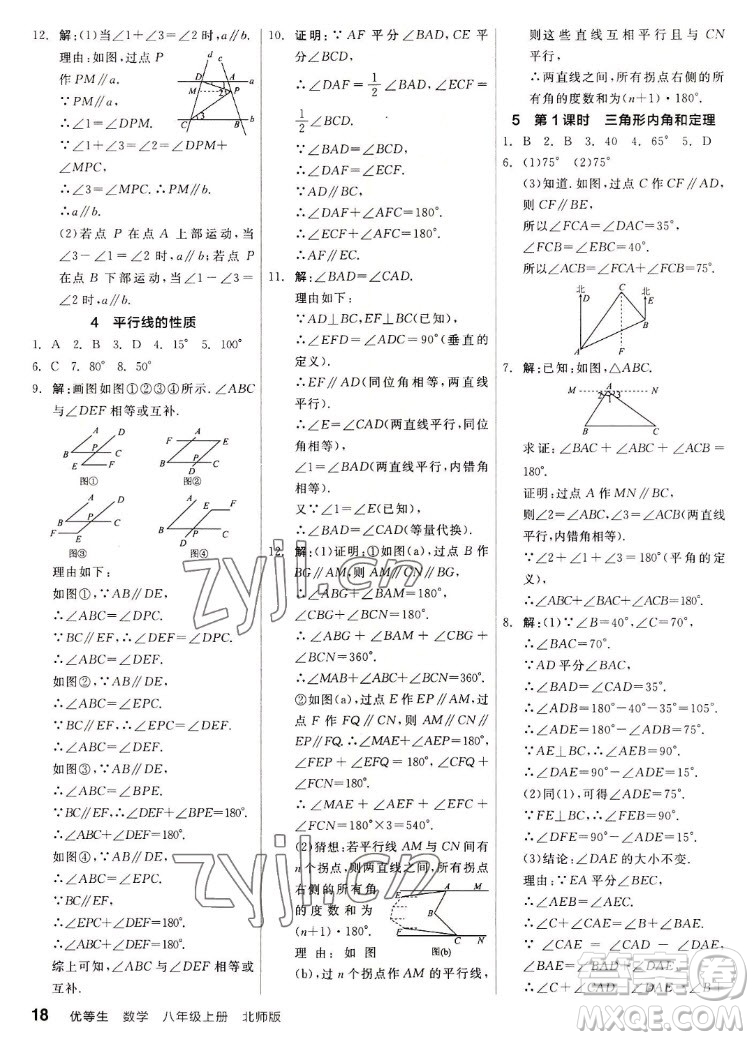 12. 解:(1)当∠1+∠3=∠2时,a∥b.
理由:如图,过点 P
作 PM∥a.
∵PM∥a,
∴∠1=∠DPM.
∵∠1+∠3=∠2=∠DPM+
∠MPC,
∴∠3=∠MPC. ∴PM∥b.
∴a∥b.
(2)若点 P 在点 A 上部运动,当
∠3-∠1=∠2时,a∥b;若点 P
在点 B 下部运动,当∠1-∠3=
∠2时,a∥b.
4 平行线的性质
1. A 2. B 3. D 4. 15° 5. 100°
6. C 7. 80° 8. 50°
9. 解:画图如图①②③④所示. ∠ABC
与∠DEF 相等或互补.
图① 图②
图③ 图④
理由如下:
如图①,∵AB∥DE,
∴∠ABC=∠DPC.
∵BC∥EF,∴∠DEF=∠DPC.
∴∠ABC=∠DEF.
如图②,∵AB∥DE,
∴∠ABC=∠EPC.
∵BC∥EF,∴∠DEF=∠EPC.
∴∠ABC=∠DEF.
如图③,∵AB∥DE,
∴∠ABC+∠BPE=180°.
∵BC∥EF,∴∠DEF=∠BPE.
∴∠ABC+∠DEF=180°.
如图④,∵AB∥DE,
∴∠ABC=∠EPC.
∵BC∥EF,
∴∠EPC+∠DEF=180°.
∴∠ABC+∠DEF=180°.
综上可知,∠ABC与∠DEF相等或
互补.
10. 证明:∵AF 平分∠BAD,CE 平
分∠BCD,
∴∠DAF=1/2∠BAD,∠ECF=
1/2∠BCD.
∵∠BAD=∠BCD,
∴∠DAF=∠ECF.
∵AD∥BC,
∴∠DAF+∠AFC=180°.
∴∠ECF+∠AFC=180°.
∴AF∥EC.
11. 解:∠BAD=∠CAD.
理由如下:
∵AD⊥BC,EF⊥BC(已知),
∴∠EFD=∠ADC=90°(垂直的
定义).
∴EF∥AD(同位角相等,两直线平
行).
∴∠E=∠CAD(两直线平行,同位
角相等),
∠1=∠BAD(两直线平行,内错角
相等).
又∵∠1=∠E(已知),
∴∠BAD=∠CAD(等量代换).
12. 解:(1)证明:①如图(a),过点 B 作
BG∥AM,则AM∥BG∥CN.
∴∠ABG+∠BAM=180°,
∠CBG+∠BCN=180°.
∴∠ABG+∠BAM+∠CBG+
∠BCN=360°.
∴∠MAB+∠ABC+∠BCN=360°.
②如图(a),过点 E 作 EP∥AM,过
点 F 作 FQ∥CN,则∠MAE+
∠AEP=180°,
∠FEP+∠EFQ=180°,
∠CFQ+∠FCN=180°.
∴∠MAE+∠AEF+∠EFC+
∠FCN=180°×3=540°.
(2)猜想:若平行线 AM与CN间有
n个拐点,则两直线之间,所有拐点
右侧的所有角
的度数和为
(n+1)·180°.
图(b)
理由:如图
(b),过n个拐点作AM的平行线,
则这些直线互相平行且与CN
平行,
∴两直线之间,所有拐点右侧的所
有角的度数和为(n+1)·180°.
5 第1课时 三角形内角和定理
1. B 2. B 3. 40 4. 65° 5. D
6. (1)75° (2)75°
(3)知道. 如图,过点 C 作 CF∥AD,
则 CF∥BE,
所以∠FCA=∠DAC=35°,
∠FCB=∠EBC=40°.
所以∠ACB=∠FCA+∠FCB=75°.
7. 解:已知:如图,△ABC.
求证:∠BAC+∠ABC+∠ACB=
180°.
证明:过点A作MN∥BC,
则∠2=∠ABC,∠3=∠ACB(两
直线平行,内错角相等).
∵∠2+∠1+∠3=180°(平角的定
义),
∴∠BAC+∠ABC+∠ACB=180°.
8. 解:(1)∵∠B=40°,∠C=70°,
∴∠BAC=70°.
∵AD平分∠BAC,
∴∠BAD=∠CAD=35°.
∴∠ADB=180°-40°-35°=105°.
∴∠ADE=180°-∠ADB=75°.
∵AE⊥BC,∴∠AEB=90°.
∴∠DAE=90°-∠ADE=15°.
(2)同(1),可得∠ADE=75°.
∵FE⊥BC,∴∠FEB=90°.
∴∠DFE=90°-∠ADE=15°.
(3)结论:∠DAE的大小不变.
理由:∵EA平分∠BEC,
∴∠AEB=∠AEC.
∴∠C+∠CAE=∠B+∠BAE.
∵∠CAE=∠CAD-∠DAE,
∠BAE=∠BAD+∠DAE,
∴∠C+∠CAD-∠DAE=∠B+
18 优等生 数学 八年级上册 北师版
zyjl.cn
zyjl.cn
答案圈